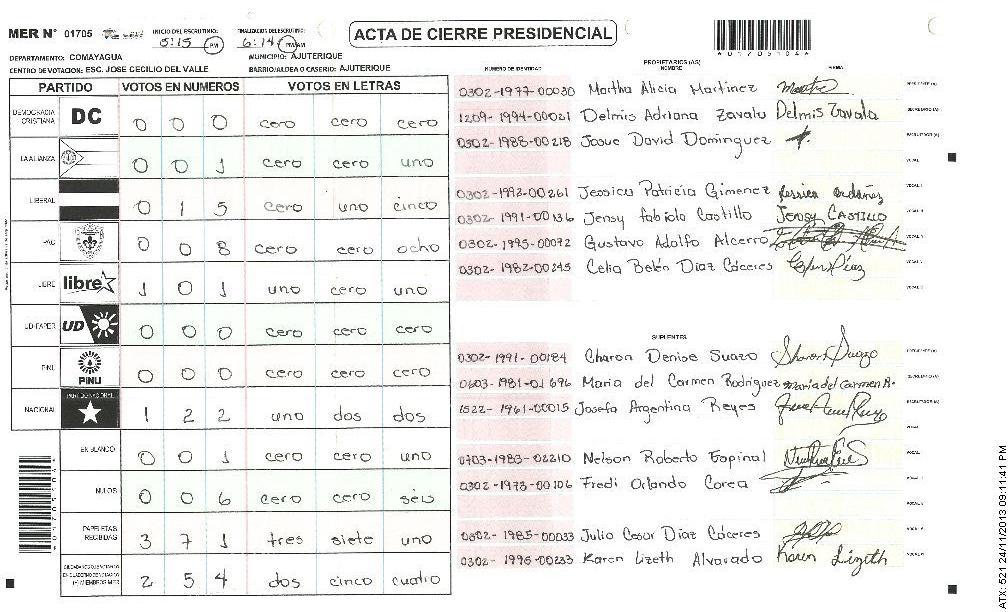 MER N° 01705
INICIO DEL ESCRUTINIO: 5:15 PM
FINALIZACION DEL ESCRUTINIO: 6:14 PM AM
ACTA DE CIERRE PRESIDENCIAL
DEPARTAMENTO: COMAYAGUA
MUNICIPIO: AJUTERIQUE
CENTRO DE VOTACION: ESC. JOSE CECILIO DEL VALLE
BARRIO/ALDEA O CASERIO: AJUTERIQUE
PARTIDO VOTOS EN NUMEROS VOTOS EN LETRAS
DEMOCRACIA CRISTIANA DC 0 0 0 cero cero cero
LA ALIANZA 0 0 1 cero cero uno
LIBERAL 0 1 5 cero uno cinco
PAC 0 0 8 cero cero ocho
LIBRE libre 1 0 1 uno cero uno
UD-FAPER UD 0 0 0 cero cero cero
PINU PINU 0 0 0 cero cero cero
NACIONAL PARTIDO NACIONAL 1 2 2 uno dos dos
EN BLANCO 0 0 1 cero cero uno
NULOS 0 0 6 cero cero séis
PAPELETAS RECIBIDAS 3 7 1 tres siete uno
2 5 4 dos cinco cuatro
NUMERO DE IDENTIDAD
PROPIETARIOS (AS)
NOMBRE
FIRMA
0302-1977-00030 Martha Alicia Martinez
1209-1994-00021 Delmis Adriana Zavala Delmis Zavala
0302-1988-00218 Josue David Dominguez
VOCAL
0302-1992-00261 Jessica Patricia Gimenez
0302-1991-00136 Jensy fabiola Castillo JENSY CASTILLO
0302-1995-00072 Gustavo Adolfo Alcerro
0302-1982-00245 Celia Belén Díaz Cáceres
SUPLENTES
0302-1991-00184 Charon Denise Suazo Sharon Suazo
0603-1981-01696 Maria del Carmen Rodriguez Maria del Carmen R.
1522-1961-00015 Josefa Argentina Reyes
VOCAL
0703-1983-02210 Nelson Roberto Espinal
0302-1973-00106 Fredi Orlando Corea
0302-1985-00033 Julio Cesar Díaz Cáceres
0302-1996-00233 Karen Lizeth Alvarado Karen Lizeth
ATX: 521 24/11/2013 09:11:41 PM